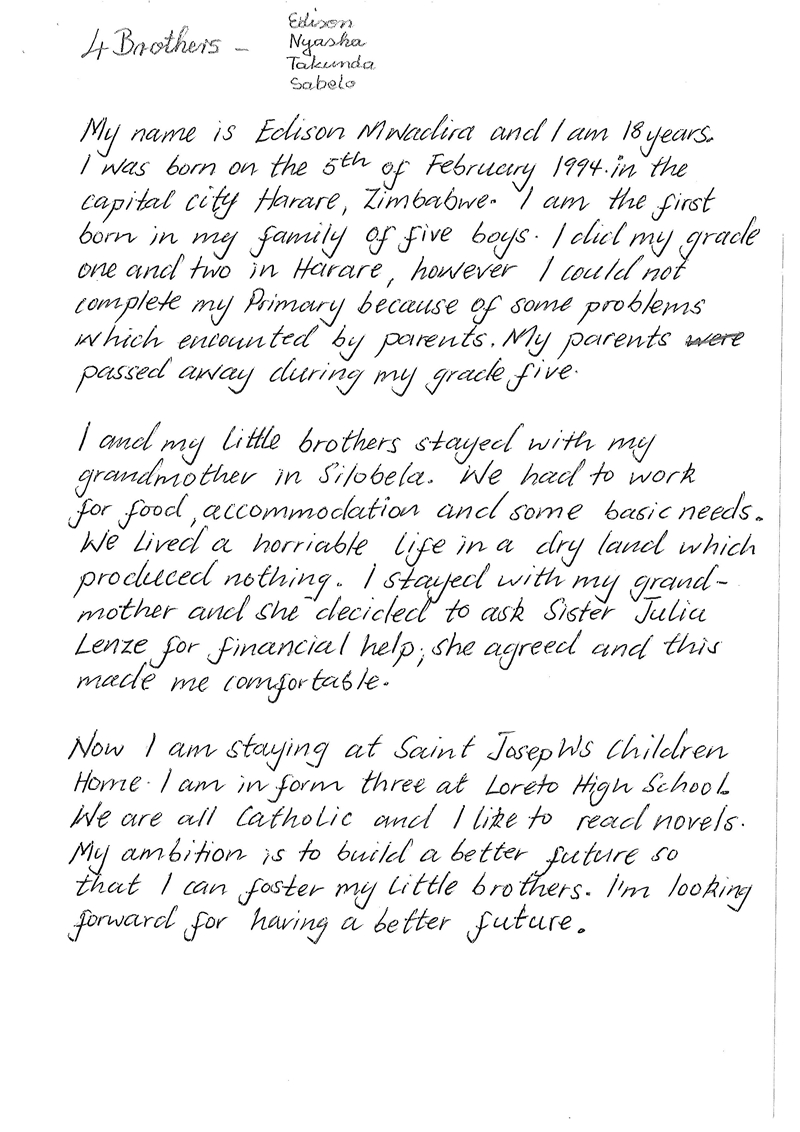 4 Brothers – Edison
Nyasha
Takunda
Sabelo
My name is Edison Mwadira and I am 18 years.
I was born on the 5th of February 1994. in the
capital city Harare, Zimbabwe. I am the first
born in my family of five boys. I did my grade
one and two in Harare, however I could not
complete my Primary because of some problems
which encounted by parents. My parents were
passed away during my grade five.
I and my little brothers stayed with my
grandmother in Silobela. We had to work
for food, accommodation and some basic needs.
We lived a horriable life in a dry land which
produced nothing. I stayed with my grand-
mother and she decided to ask Sister Julia
Lenze for financial help; she agreed and this
made me comfortable.
Now I am staying at Saint Joseph's Children
Home. I am in form three at Loreto High School.
We are all Catholic and I like to read novels.
My ambition is to build a better future so
that I can foster my little brothers. I'm looking
forward for having a better future.